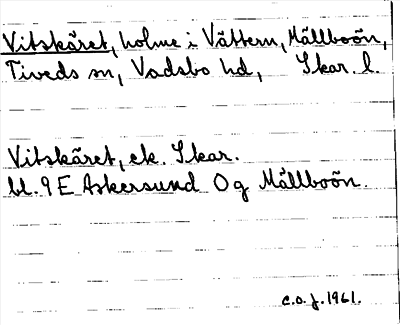 Vitskäret, holme i Vättern, Mållboön,
Tiveds sn, Vadsbo hd, Skar. l.
Vitskäret, ek. Skar.
bl. 9 E Askersund 0 g Mållboön.
c.o.j. 1961.